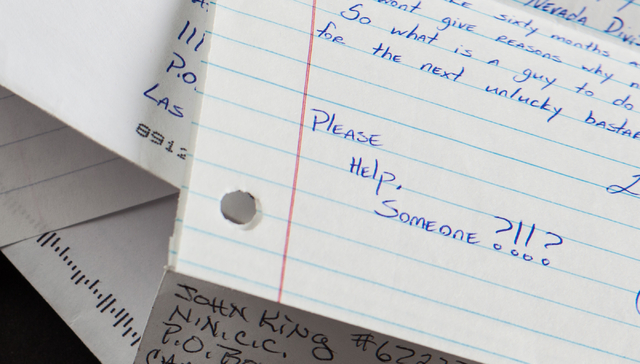 Nevada Divi
ke sixty months a
wont give reasons why n
So what is a guy to do
for the next unlucky bastar
Please
Help,
Someone ?!!?
A:
111
P.O.
LAS
891
John King #622
N.N.C.C.
P.O. Bo
CA